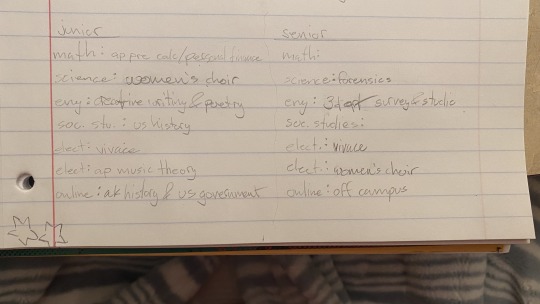 junior
math: ap pre calc/personal finance
science: women's choir
eng: creative writing & poetry
soc. stu.: us history
elect: vivace
elect: ap music theory
online: ak history & us government
senior
math:
science: forensics
eng: survey & studio
soc. studies:
elect.: vivace
elect.: women's choir
online: off campus